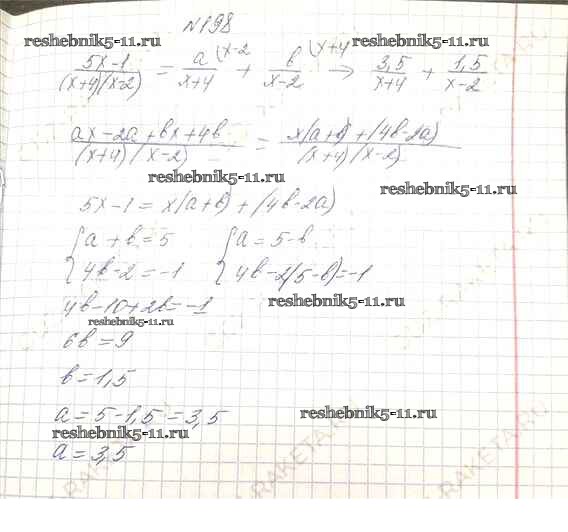 №198
reshebnik5-11.ru reshebnik5-11.ru
(5x-1)/((x+4)(x-2)) = a/(x+4) (x-2 + b/(x-2) (x+4 → 3,5/(x+4) + 1,5/(x-2)
(ax-2a+bx+4b)/((x+4)(x-2)) = (x(a+b)+(4b-2a))/((x+4)(x-2))
reshebnik5-11.ru reshebnik5-11.ru
5x-1=x(a+b)+(4b-2a)
{a+b=5 {a=5-b
{4b-2=-1 {4b-2(5-b)=-1
4b-10+2b=-1 reshebnik5-11.ru
reshebnik5-11.ru
6b=9
b=1,5
a=5-1,5=3,5 reshebnik5-11.ru
reshebnik5-11.ru
a=3,5